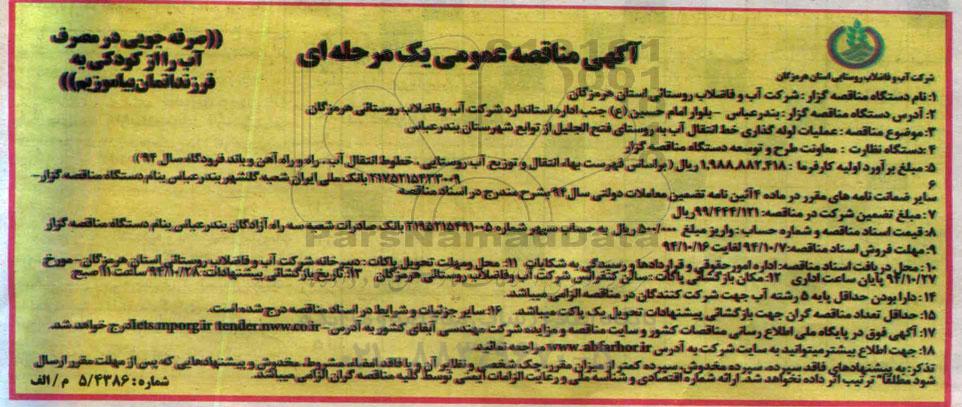 ((صرفه جویی در مصرف
آب را از کودکی به
فرزندانمان بیاموزیم))
آگهی مناقصه عمومی یک مرحله ای
شرکت آب و فاضلاب روستایی استان هرمزگان
۱: نام دستگاه مناقصه گزار : شرکت آب و فاضلاب روستائی استان هرمزگان
۲: آدرس دستگاه مناقصه گزار : بندرعباس - بلوار امام حسین (ع) جنب اداره استاندارد شرکت آب وفاضلاب روستائی هرمزگان
۳: موضوع مناقصه : عملیات لوله گذاری خط انتقال آب به روستای فتح الجلیل از توابع شهرستان بندرعباس
۴: دستگاه نظارت : معاونت طرح و توسعه دستگاه مناقصه گزار
۵: مبلغ برآورد اولیه کارفرما : ۱.۹۸۸.۸۸۲.۴۱۸ ریال (براساس فهرست بهاء انتقال و توزیع آب روستایی ، خطوط انتقال آب ، راه و راه آهن و باند فرودگاه سال ۹۴)
۶ بانک ملی ایران شعبه گلشهر بندرعباس بنام دستگاه مناقصه گزار-
سایر ضمانت نامه های مقرر در ماده ۴ آئین نامه تضمین معاملات دولتی سال ۹۴ بشرح مندرج در اسناد مناقصه
۷: مبلغ تضمین شرکت در مناقصه: ۹۹/۴۴۴/۱۲۱ ریال
۸: قیمت اسناد مناقصه و شماره حساب : واریز مبلغ ۵۰۰/۰۰۰ ریال به حساب سپهر شماره بانک صادرات شعبه سه راه آزادگان بندرعباس بنام دستگاه مناقصه گزار
۹: مهلت فروش اسناد مناقصه: ۹۴/۱۰/۷ لغایت ۹۴/۱۰/۱۶
۱۰: محل دریافت اسناد مناقصه: اداره امور حقوقی و قراردادها و رسیدگی به شکایات ۱۱: محل ومهلت تحویل پاکات : دبیرخانه شرکت آب وفاضلاب روستائی استان هرمزگان-مورخ
۹۴/۱۰/۲۷ پایان ساعت اداری ۱۲: مکان بازگشائی پاکات: سالن کنفرانس شرکت آب وفاضلاب روستائی هرمزگان ۱۳: تاریخ بازگشائی پیشنهادات: ۹۴/۱۰/۲۸ ساعت ۱۱ صبح
۱۴: دارا بودن حداقل پایه ۵ رشته آب جهت شرکت کنندگان در مناقصه الزامی میباشد.
۱۵: حداقل تعداد مناقصه گران جهت بازگشائی پیشنهادات تحویل یک پاکت میباشد. ۱۶: سایر جزئیات و شرایط در اسناد مناقصه درج شده است.
۱۷: آگهی فوق در پایگاه ملی اطلاع رسانی مناقصات کشور و سایت مناقصه و مزایده شرکت مهندسی آبفای کشور به آدرس - iets.mporg.ir tender.nww.co.ir درج خواهد شد.
۱۸: جهت اطلاع بیشتر میتوانید به سایت شرکت به آدرس www.abfarhor.ir مراجعه نمائید.
تذکر: به پیشنهادهای فاقد سپرده، سپرده مخدوش، سپرده کمتر از میزان مقرر، چک شخصی و نظایر آن و یا فاقد امضاء، مشروط، مخدوش و پیشنهادهایی که پس از مهلت مقرر ارسال
شود مطلقا" ترتیب اثر داده نخواهد شد. ارائه شماره اقتصادی و شناسه ملی و رعایت الزامات ایمنی توسط کلیه مناقصه گران الزامی میباشد.
شماره : ۵/۴۳۸۶ م / الف
ParsNamadData